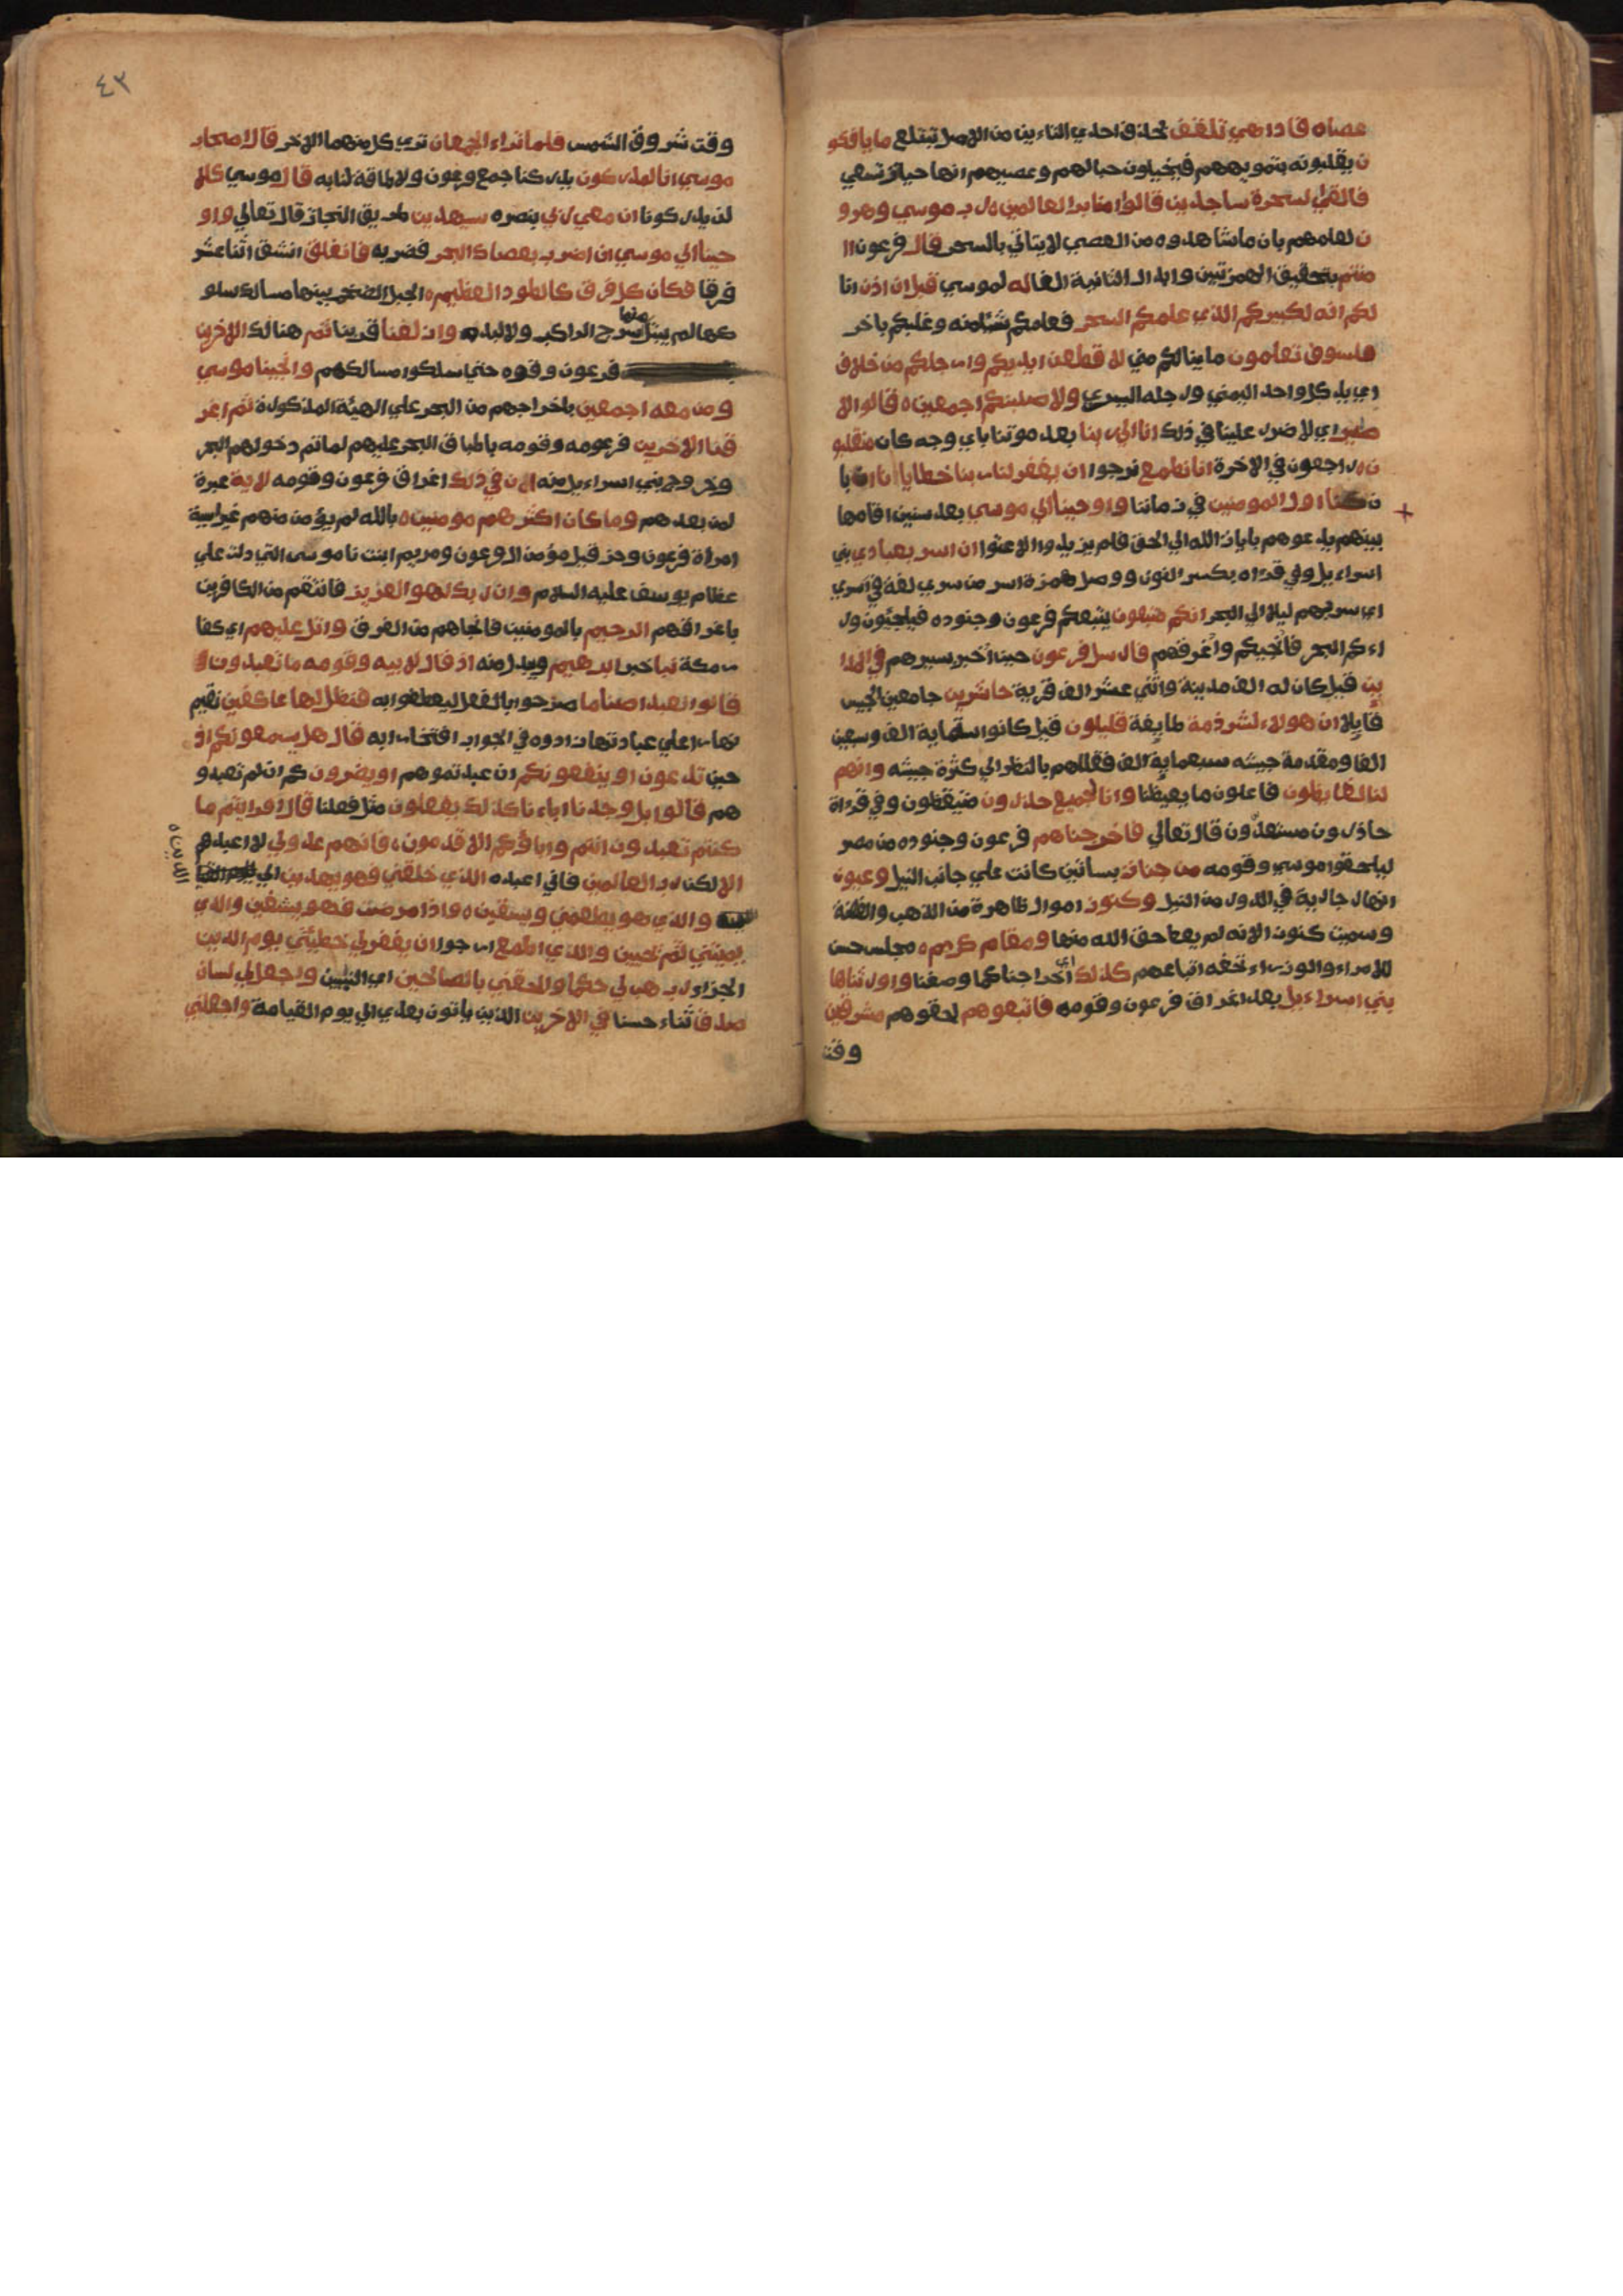 عصاه فاذا هي تلقف بحذف احدي التاءين من الاصل تبتلع ما يافكو
ن يقلبونه بتمويههم فيخيلون حبالهم وعصيهم انها حياة تسعي
فالقي السحرة ساجدين قالوا امنا برب العالمين ه رب موسي وهرو
ن لعلمهم بان ما شاهدوه من العصي لا يتاتي بالسحر قال فرعون اا
منتم بتحقيق الهمزتين وابدال الثانية الفا له لموسي قبل ان اذن انا
لكم انه لكبيركم الذي علمكم السحر فعلمكم شئا منه وغلبكم باخر
فلسوف تعلمون ما ينالكم مني لا قطعن ايديكم وارجلكم من خلاف
اي يد كل واحد اليمني ورجله اليسري ولاصلبنكم اجمعين ه قالوا لا
ضير اي لا ضرر علينا في ذلك انا الي ربنا بعد موتنا باي وجه كان منقلبو
ن ه راجعون في الاخرة انا نطمع نرجوا ان يغفر لنا ربنا خطايانا ان با
ن كنا اول المومنين في زماننا واوحينا الي موسي بعد سنين اقامها
بينهم يدعوهم بايات الله الي الحق فلم يزيدوا الا عتوا ان اسر بعبادي بني
اسراءيل وفي قراه بكسر النون ووصل همزة اسر من سري لغة في اسري
اي سر بهم ليلا الي البحر انكم متبعون يتبعكم فرعون وجنوده فيلجئون ور
اءكم البحر فانجيكم واغرقهم فارسل فرعون حين اخبر بسيرهم في المدا
ين قيل كان له الف مدينة واثني عشر الف قرية حاشرين جامعين الجيس
قايلا ان هولاء لشرذمة طايفة قليلون قيل كانوا ستماية الف وسبعين
الفا ومقدمة جيشه سبعماية الف فقللهم بالنظر الي كثرة جيشه وانهم
لنا لغايظون فاعلون ما يغيظنا وانا لجميع حذرون متيقظون وفي قراة
حاذرون مستعدون قال تعالي فاخرجناهم فرعون وجنوده من مصر
ليلحقوا موسي وقومه من جنات بساتين كانت علي جانب النيل وعيون
انهار جارية في الدور من النيل وكنوز اموال ظاهرة من الذهب والفضة
وسميت كنوز لانه لم يعط حق الله منها ومقام كريم ه مجلس حسن
للامراء والوزراء تحفه اتباعهم كذلك اي اخراجنا كما وصفنا واورثناها
بني اسراءيل بعد اغراق فرعون وقومه فاتبعوهم لحقوهم مشرقين
وقت
٤٣
وقت شروق الشمس فلما تراء الجمعان تري كل منهما الاخر قال اصحاب
موسي انا لمدركون يدركنا جمع فرعون ولا طاقة لنا به قال موسي كلا
لن يدركونا ان معي ربي بنصره سيهدين طريق النجاة قال تعالي واو
حينا الي موسي ان اضرب بعصاك البحر فضربه فانفلق انشق اثنا عشر
فرقا فكان كل فرق كالطود العظيم ه الجبل الضخم بينها مسالك سلو
كها لم يبتل منها سرج الراكب ولا لبده وازلفنا قربنا ثم هنالك الاخرين
فرعون وقوه حتي سلكوا مسالكهم وانجينا موسي
ومن معه اجمعين باخراجهم من البحر علي الهيئة المذكورة ثم اغر
قنا الاخرين فرعومه وقومه باطباق البحر عليهم لما تم دخولهم البحر
وخروج بني اسراءيل منه ان في ذلك اغراق فرعون وقومه لاية عبرة
لمن بعدهم وما كان اكثرهم مومنين ه بالله لم يؤمن منهم غير اسية
امراة فرعون وحز قيل مؤمن ال فرعون ومريم ابنت ناموسى التي دلت علي
عظام يوسف عليه السلام وان ربك لهو العزيز فانتقم من الكافرين
باغراقهم الرحيم بالمومنين فانجاهم من الغرق واتل عليهم اي كفا
ر مكة نبا خبر ابرهيم ويبدل منه اذ قال لابيه وقومه ما تعبدون ه
قالوا نعبد اصناما صرحوا بالفعل ليعطفوا به فنظل لها عاكفين نقيم
نهارا علي عبادتها زادوه في الجواب افتخارا به قال هل يسمعونكم اذ
حين تدعون او ينفعونكم ان عبدتموهم او يضرون كم ان لم تعبدو
هم قالوا بل وجدنا اباءنا كذلك يفعلون مثل فعلنا قال افرايتم ما
كنتم تعبدون انتم واباؤكم الاقدمون ه فانهم عدو لي لا اعبدهم
الا لكن رب العالمين فاني اعبده الذي خلقني فهو يهدين الي
الدين ه
والذي هو يطعمني ويسقين ه واذا مرضت فهو يشفين والذي
يميتني ثم يحيين والذي اطمع ارجوا ان يغفر لي خطيئتي يوم الدين
الجزاء رب هب لي حكما والحقني بالصالحين اي النبيين واجعل لي لسان
صدق ثناء حسنا في الاخرين الذين ياتون بعدي الي يوم القيامة واجعلني